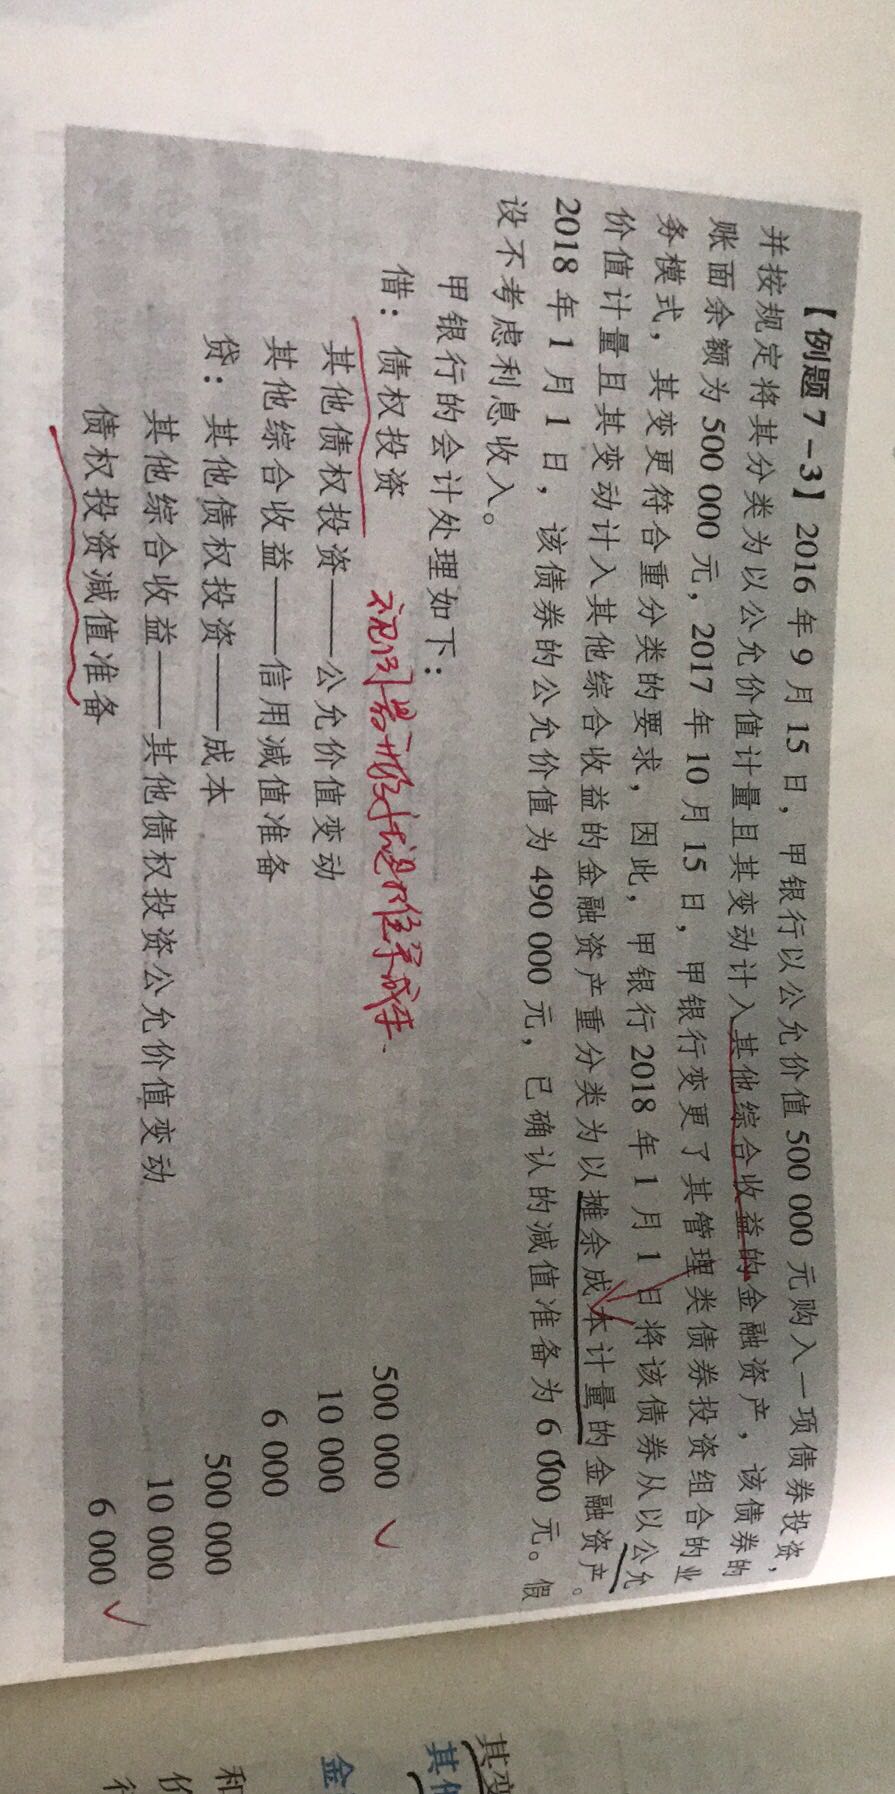 【例题7-3】2016年9月15日，甲银行以公允价值500 000元购入一项债券投资，
并按规定将其分类为以公允价值计量且其变动计入其他综合收益的金融资产，该债券的
账面余额为500 000元，2017年10月15日，甲银行变更了其管理类债券投资组合的业
务模式，其变更符合重分类的要求，因此，甲银行2018年1月1日将该债券从以公允
价值计量且其变动计入其他综合收益的金融资产重分类为以摊余成本计量的金融资产。
2018年1月1日，该债券的公允价值为490 000元，已确认的减值准备为6 000元。假
设不考虑利息收入。
甲银行的会计处理如下：
借：债权投资 500 000
其他债权投资——公允价值变动 10 000
其他综合收益——信用减值准备 6 000
贷：其他债权投资——成本 500 000
其他综合收益——其他债权投资公允价值变动 10 000
债权投资减值准备 6 000
其变
其他
金
和
价